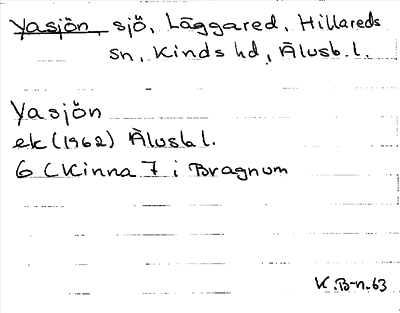 Yasjön, sjö, Läggared, Hillareds
sn, Kinds hd, Älvsb.l.
Yasjön
ek (1962) Älvsb l.
6 (Kinna 7 i Bragnum
K.B-n.63